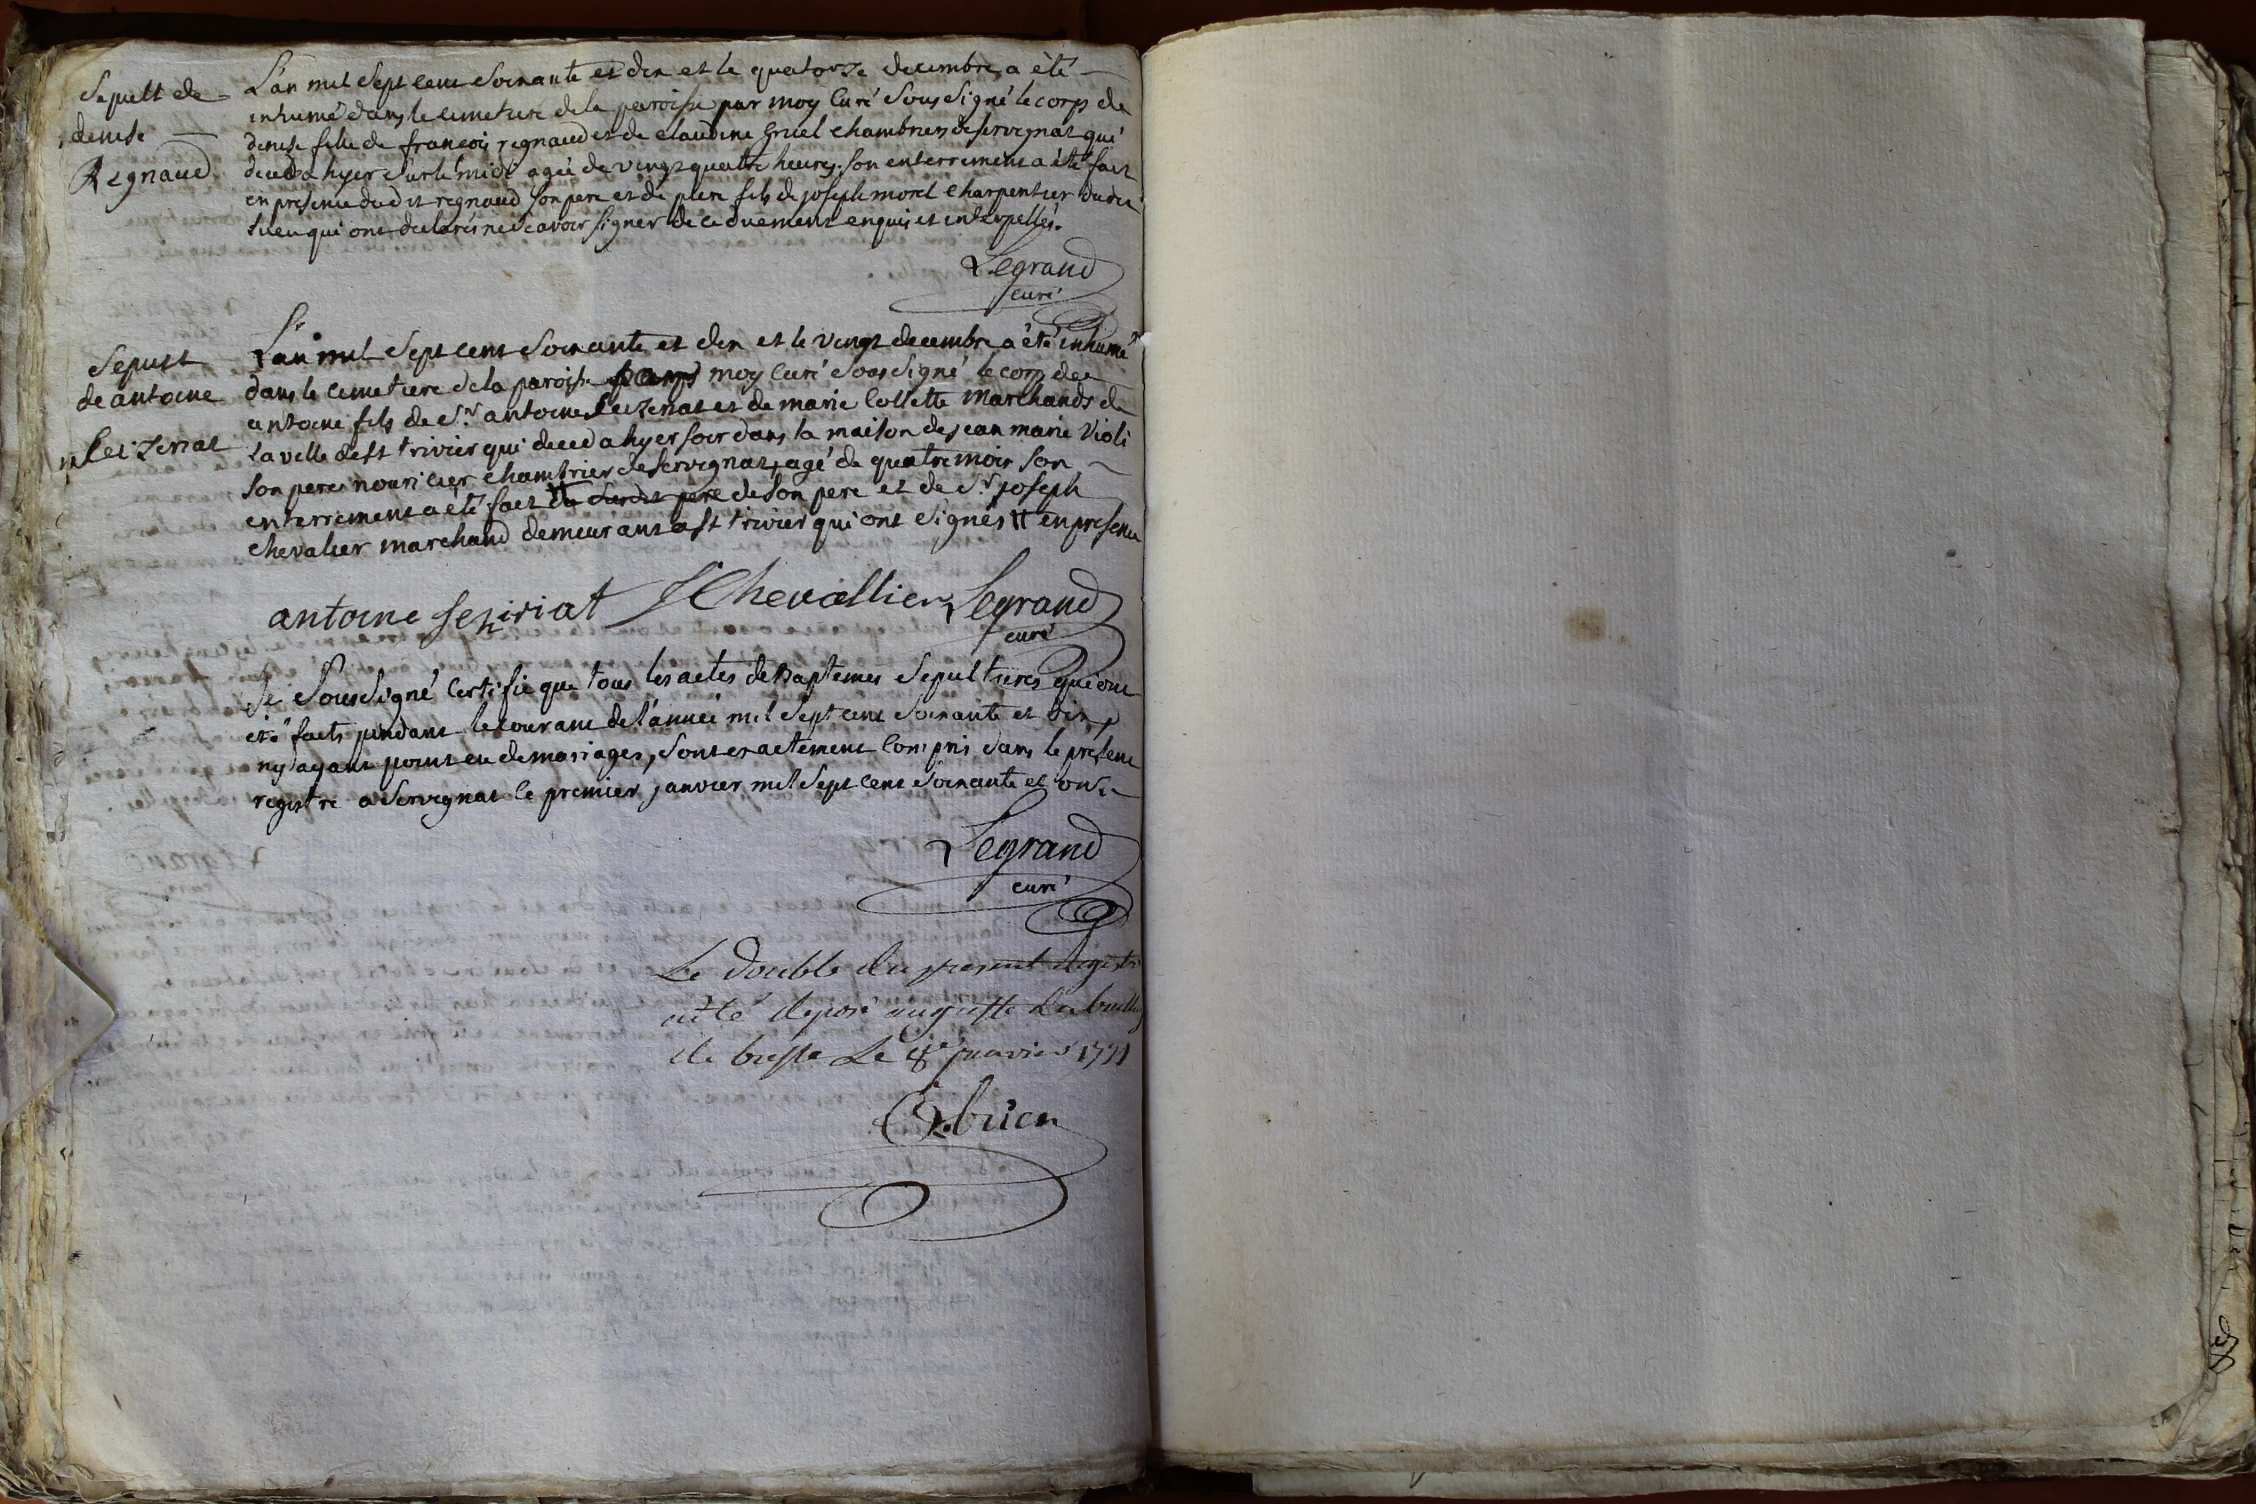 Sepult de
denise
Regnaud
L'an mil sept cent soixante et dix et le quatorze decembre a èté
inhumé dans le cimetiere de la paroisse par moy curé soussigné le corps de
denise fille de francois regnaud et de claudine gruel chambriers de servignat qui
deceda hyer sur le midi agée de vingt quatre heures. son enterrement a été fait
en presence dudit regnaud son pere et de piere fils de joseph morel charpentier dudit
lieu qui ont declarés ne scavoir signer de ce duement enquis et interpellés.
Legrand
curé
Sepult
de antoine
Seizeriat
L'an mil sept cent soixante et dix et le vingt decembre a été inhumé
dans le cimetiere de la paroisse par moy curé soussigné le corps de
antoine fils de Sr. antoine Seizeriat et de marie Collette marchands de
la ville de st trivier qui deceda hyer soir dans la maison de jean marie Violi
son pere nouricier chambrier de servignat, agé de quatre mois son
enterrement a eté fait # du susdit pere de son pere et de Sr. joseph
chevalier marchand demeurant a st trivier qui ont signés # en presence
antoine seziriat J Chevallier Legrand
curé
Je soussigné certifie que tous les actes de Baptemes sepultures qui ont
été faits pendant le courant de l'année mil sept cent soixante et dix,
n'y ayant point eu de mariages, sont exactement compris dans le present
registre a Servignat le premier janvier mil sept cent soixante et onze
Legrand
curé
Le double du present Registre
a été deposé au greffe du bailliage
de bresse Le 8e janvier 1771